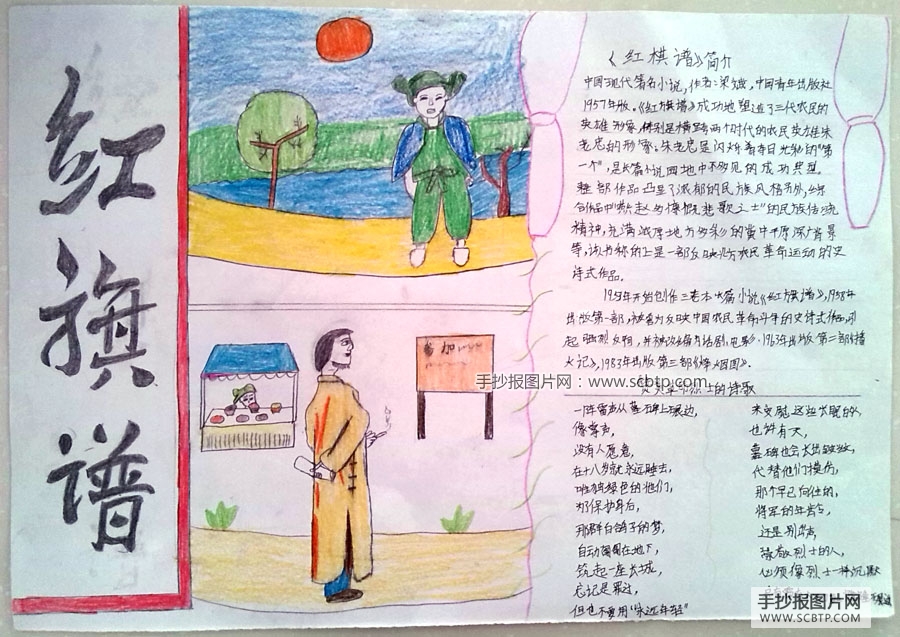 红旗谱
《红棋谱》简介
中国现代著名小说,作者:梁斌,中国青年出版社
1957年版。《红旗谱》成功地塑造了三代农民的
英雄形象,特别是横跨两个时代的农民英雄朱
老忠的形象,朱老忠是闪烁着夺目光彩的"第
一个",是长篇小说园地中不多见的成功典型。
整部作品凸显了浓郁的民族风格
的民族传统
精神,充满 地方 的冀中平原深广背景
等,该书称得上是一部反映北方农民革命运动的史
诗式作品。
1953年开始创作三卷本长篇小说《红旗谱》,1958年
出版第一部,被誉为反映中国农民革命斗争的史诗式作品,引
起强烈反响,并被改编为话剧、电影。1963年出版第二部《播
火记》,1983年出版第三部《烽烟图》。
参加
手抄报图片网:www.scbtp.com
的诗歌
一阵雷声从墓碑上滚过,
像掌声,
没有人愿意,
在十八岁就永远睡去,
唯独绿色的他们,
为保护身后,
那群白鸽子的梦,
自动围圈在地下,
筑起一座长城,
忘记是罪过,
但也不要用"永远年轻"
来安慰这过早眠的人,
也许有一天,
墓碑也会长出皱纹,
代替他们
那个早已 的,
将军的年龄,
还是别 声,
烈士的人,
必须像烈士一样沉默
手抄报图片网
WWW.SCBTP.COM